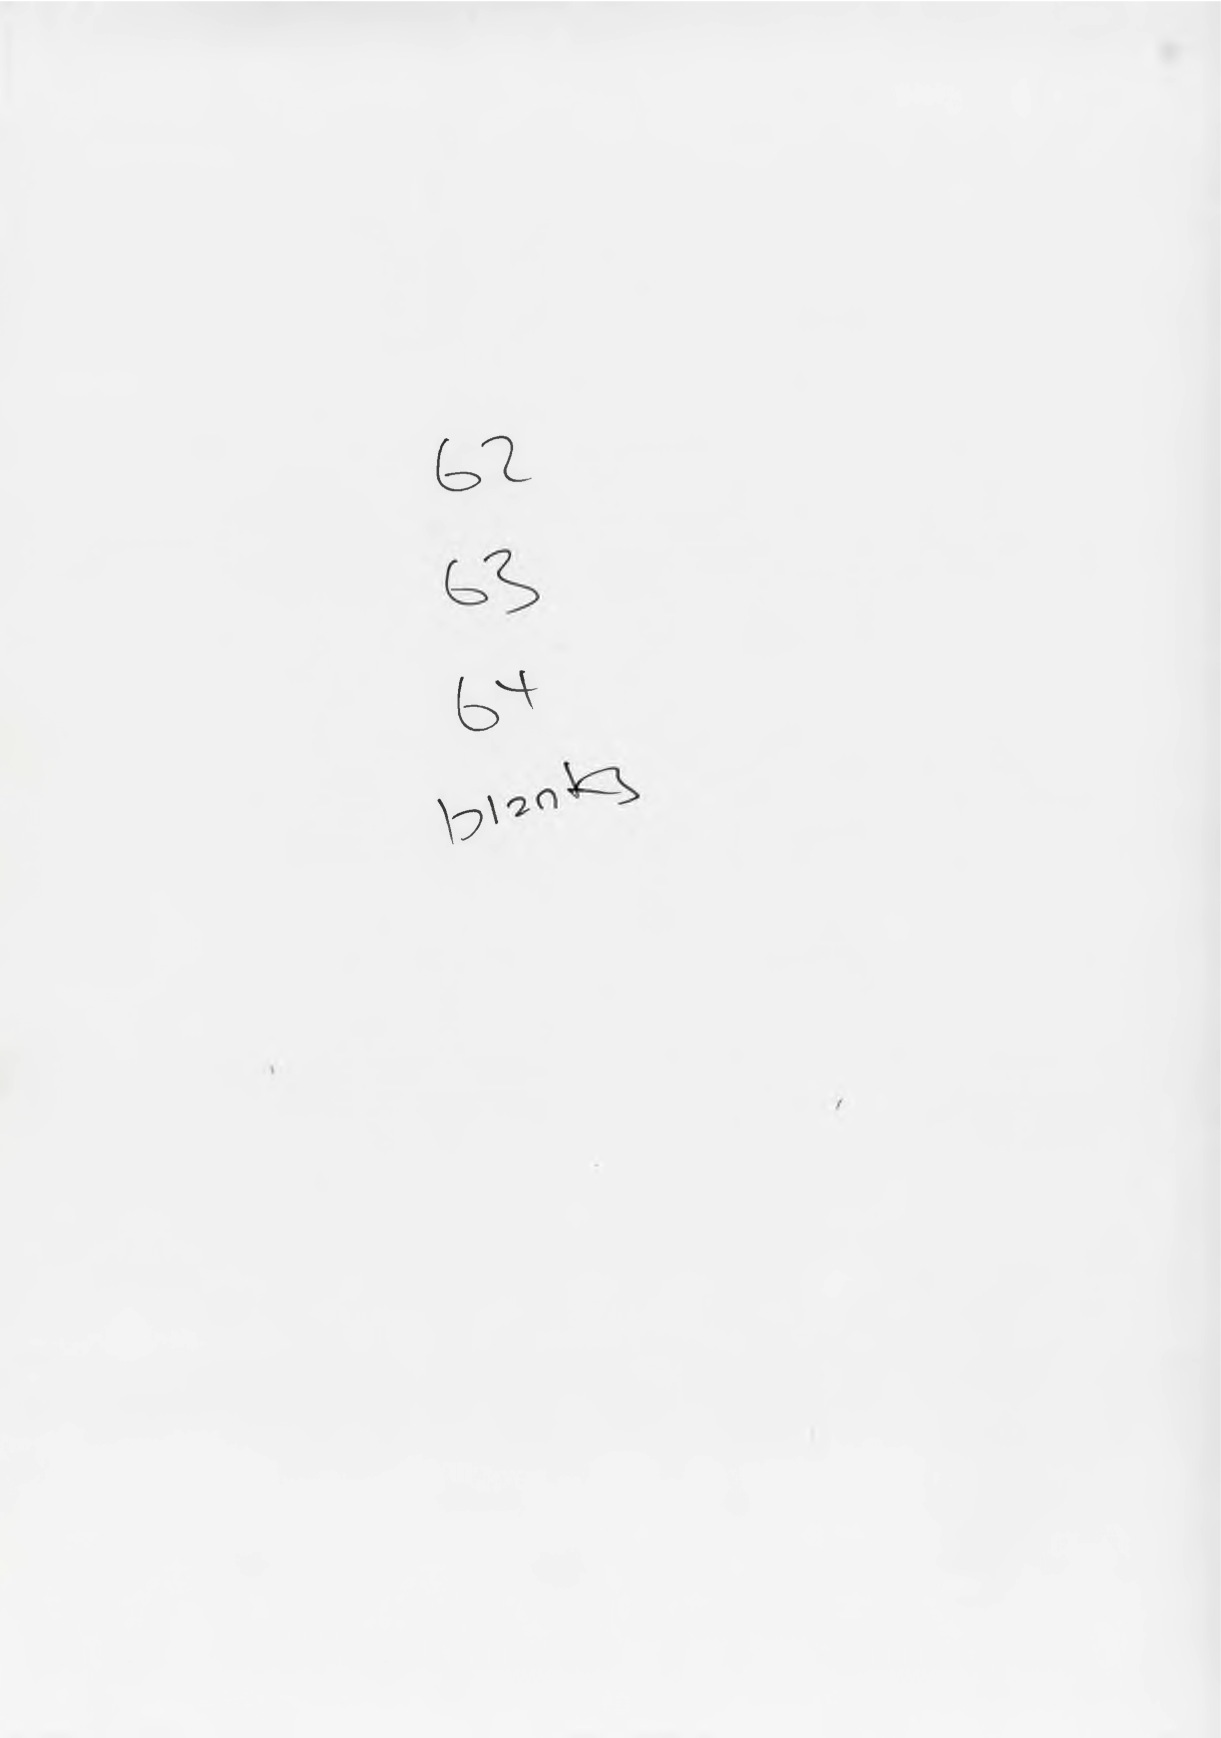 62
63
64
blanks